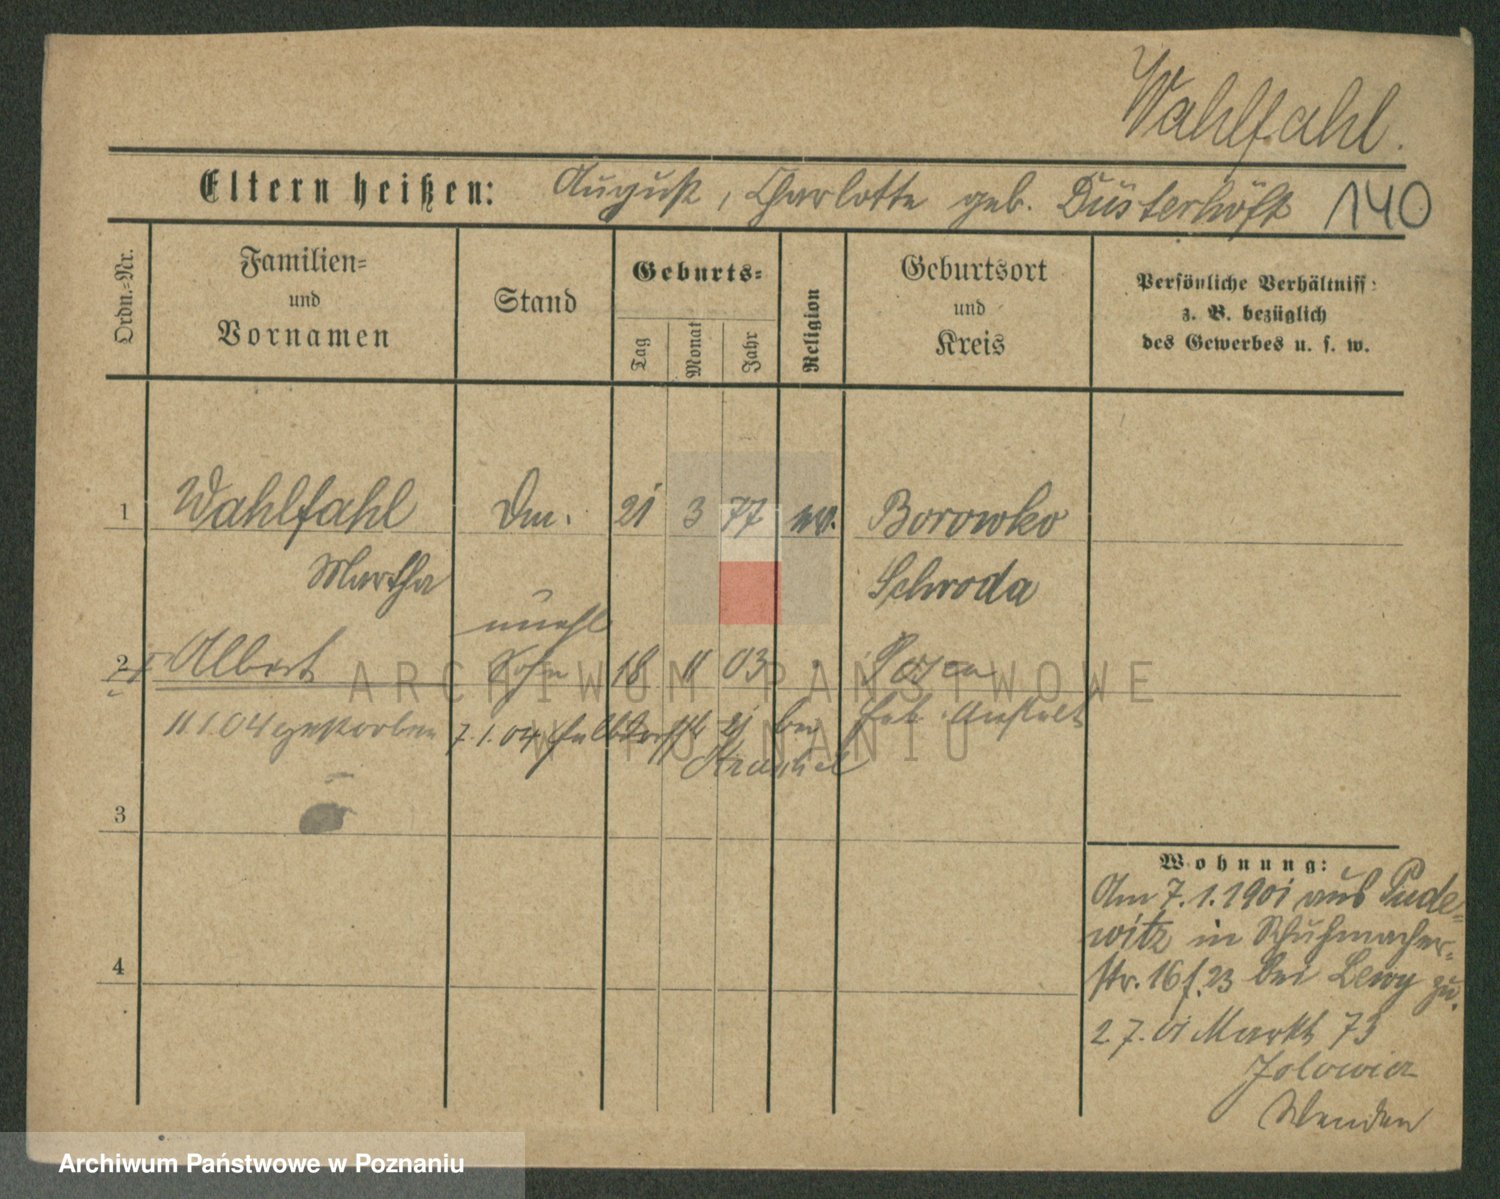 Wahlfahl.
Eltern heißen: August, Charlotte geb. Düsterhöft 140
Ordn.-Nr.
Familien-
und
Vornamen
Stand
Geburts-
Tag
Monat
Jahr
Religion
Geburtsort
und
Kreis
Persönliche Verhältniss
z. B. bezüglich
des Gewerbes u. s. w.
1 Wahlfahl 21 3 77 Borowko
Martha Schroda
unehl
2 Albert Sohn 18 11 03 Posen
11 1.04 gestorben 7.1.04 21 bei
3
4
Wohnung:
Am 7.1.1901 aus Pude-
witz in Schuhmacher-
str. 16 f. 23 bei Lewy zu.
2.7.01 Markt 73
Jolowicz
ARCHIWUM PAŃSTWOWE
W POZNANIU
Archiwum Państwowe w Poznaniu